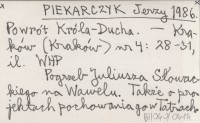 PIEKARCZYK Jerzy 1986.
Powrót Króla-Ducha. — Kra-
ków (Kraków) nr 4: 28-31,
il. WHP
Pogrzeb Juliusza Słowac-
kiego na Wawelu. Także o pro-
jektach pochowania go w Tatrach.